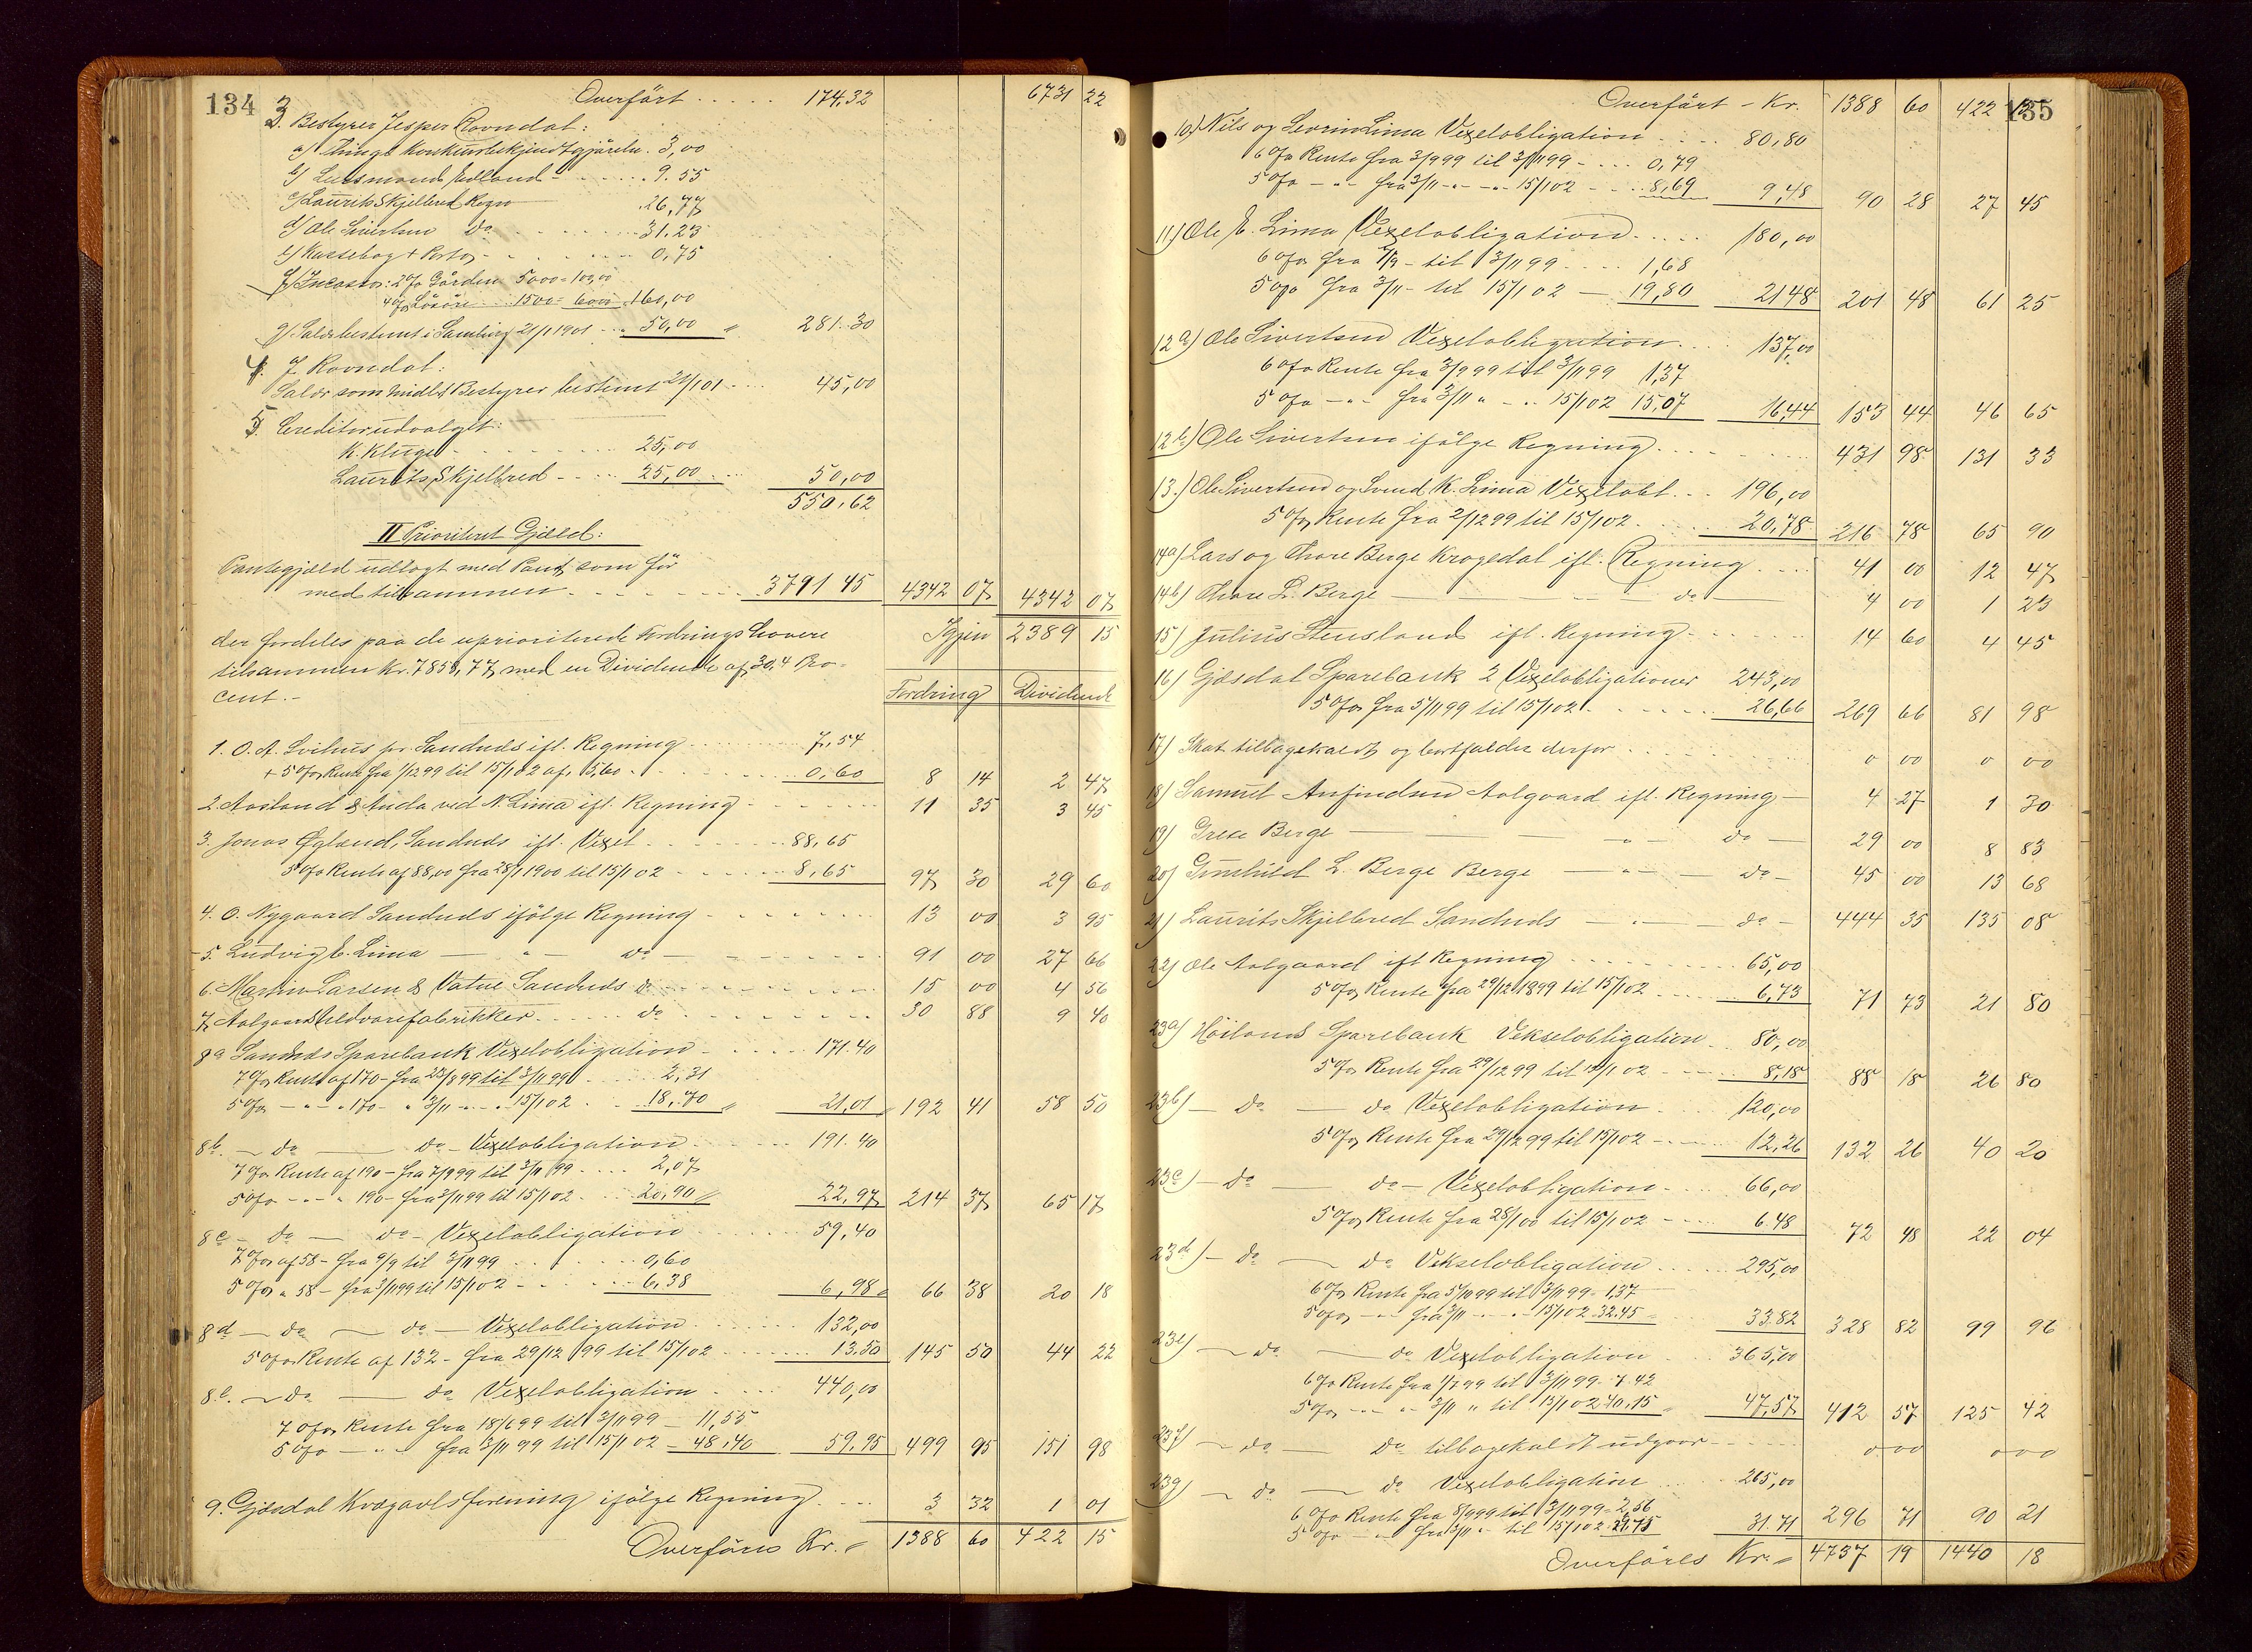 134
Overført . . . . . 174,32 6731 22
3. Bestyrer Jesper Ravndal:
a/ Things Konkursbekjendtgjørelse . 3,00
b/ Lensmand Edland - . . . . . 9.55
c/ Laurits Skjelbred Regn 26,77
d/ Ole Sivertsen Do . . . . . 31.23
e/ Kassebog + Porto - . . . . 0,75
f/ Incasso: 2% Gården 5000 = 100,00
4% Løsøre 1500 = 60,00 160,00
g/ Salær bestemt i Samling 21/1 1901 - " 50,00 " 281.30
4. J Ravndal:
Salær som midlt Bestyrer bestemt 21/1 01 - . . . 45,00
5. Creditorudvalget:
K. Kluge . . . . . 25,00
Laurits Skjelbred - . . . 25,00 . . . 50,00
550,62
II Prioriteret Gjæld:
Pantegjæld udlagt med Pant, som før
med tilsammen . . . . . 3791 45 4342 07 4342 07
der fordeles paa de uprioriterede Fordringshavere Igjen 2389 15
tilsammen Kr. 7858,77 med en Dividende af 30,4 Pro-
cent. - Fordring Dividende
1. O. A. Svihus pr. Sandnds ifl. Regning . . . . 7,54
+ 5% Rente fra 1/12 99 til 15/1 02 af 5,60 . . . . 0,60 8 14 2 47
2. Aasland & Auda ved N. Lima ifl. Regning - . . . . 11 35 3 45
3. Jonas Øgland, Sandnds ifl. Vexel . . . . . 88,65
5% Rente af 88,00 fra 28/1 1900 til 15/1 02 - . . . 8,65 97 30 29 60
4. O. Nygaard Sandnds ifølge Regning - . . . . 13 00 3 95
5. Ludvig E. Lima — " — do — . . . . 91 00 27 66
6. Martin Larsen & Vatne Sandnds Do . . . . 15 00 4 56
7. Aalgaards Uldvarefabrikker . . . . do . . . . 30 88 9 40
8a Sandnds Sparebank Vexelobligation - . . . . 171.40
7% Rente af 170 - fra 23/8 99 til 3/11 99 . . . 2,31
5% - " - " 170 - " 3/11 - " - " 15/1 02 . . 18,70 " 21,01 " 192 41 58 50
8b. — do — do - Vexelobligation . . . . 191.40
7% Rente af 190 - fra 7/9 99 til 3/11 99 . . . 2,07
5% - " - " 190 - fra 3/11 99 til 15/1 02 . . 20,90 " 22,97 214 37 65 17
8c — do — do - Vexelobligation . . . . 59,40
7% af 58 - fra 9/9 til 3/11 99 . . . . 0,60
5% " 58 - fra 3/11 99 til 15/1 02 - . . . 6,38 6,98 " 66 38 20 18
8d — do — do — Vexelobligation . . . . 132,00
5% Rente af 132 - fra 29/12 99 til 15/1 02 . . . . 13.50 145 50 44 22
8e. — do — do Vexelobligation . . . . 440,00
7% Rente fra 18/6 99 til 3/11 99 — 11,55
5% — " — " fra 3/11 99 til 15/1 02 — 48,40 59,95 499 95 151 98
9. Gjæsdal Kvægavlsforening ifølge Regning . . . . 3 32 1 01
Overføres Kr. " 1388 60 422 15
135
Overført - Kr. 1388 60 422 15
10) Nils og Sevrin Lima Vexelobligation . . . . 80,80
6% Rente fra 3/9 99 til 3/11 99 - . . . 0,79
5% - " - fra 3/11 - " - " 15/1 02 - . . 8,69 9,48 90 28 27 45
11) Ole E. Lima Vexelobligation . . . . 180,00
6% fra 7/9 - til 3/11 99 . . . . 1,68
5% fra 3/11 - til 15/1 02 — 19,80 21 48 201 48 61 25
12a) Ole Sivertsen Vexelobligation . . . 137,00
6% Rente fra 3/9 99 til 3/11 99 1,37
5% — " — fra 3/11 " - " 15/1 02 15,07 16,44 153 44 46 65
12b) Ole Sivertsen ifølge Regning . . . . . 431 98 131 33
13.) Ole Sivertsen og Svend K. Lima Vexelobl. . . 196,00
5% Rente fra 2/12 99 til 15/1 02 . . . . 20,78 216 78 65 90
14a) Lars og Thore Berge Kragedal ifl. Regning . . . . 41 00 12 47
14b) Thore L. Berge — — do — 4 00 1 23
15) Julius Stensland ifl. Regning . . . . . 14 60 4 45
16) Gjæsdal Sparebank 2 Vexelobligationer 243,00
5% fra 5/11 99 til 15/1 02 . . . . . 26,66 269 66 81 98
17) Skat tilbagekaldt og bortfalder derfor . . . . . 0 00 0 00
18) Samuel Anfindsen Aalgaard ifl. Regning — 4 27 1 30
19) Grete Berge — — " — do — 29 00 8 83
20) Gunhild L. Berge Berge — " — do - 45 00 13 68
21) Laurits Skjelbred Sandnds — " — do - 444 35 135 08
22) Ole Aalgaard ifl Regning . . . . . 65,00
5% Rente fra 29/12 1899 til 15/1 02 . . . . 6,73 71 73 21 80
23a) Höilands Sparebank Vekselobligation . 80,00
5% Rente fra 29/12 99 til 15/1 02 - . . . 8,18 88 18 26 80
23b) - do — do Vexelobligation . . . 120,00
5% Rente fra 29/12 99 til 15/1 02 - . . . 12,26 132 26 40 20
23c) — do — do — Vexelobligation - . . 66,00
5% Rente fra 28/1 00 til 15/1 02 - . . . 6.48 72 48 22 04
23d) - do — do Vekselobligation . . . . 295,00
6% Rente fra 5/10 99 til 3/11 99 - 1,37
5% - " - fra 3/11 - " - " 15/1 02 32.45 33.82 328 82 99 96
23e) — do — do Vexelobligation . . . 365,00
6% Rente fra 1/7 99 til 3/11 99 - 7.42
5% - " - " 3/11 " til 15/1 02 40,15 " 47,57 412 57 125 42
23f) — do — do tilbagekaldt udgaar - . . . 0 00 0 00
23g) — do — do Vexelobligation . . . 265,00
6% Rente fra 8/9 99 til 3/11 99 - 2,56
5% — " - fra 3/11 " - til 15/1 02 - 29,15 31.71 296 71 90 21
Overføres Kr. " 4737 19 1440 18